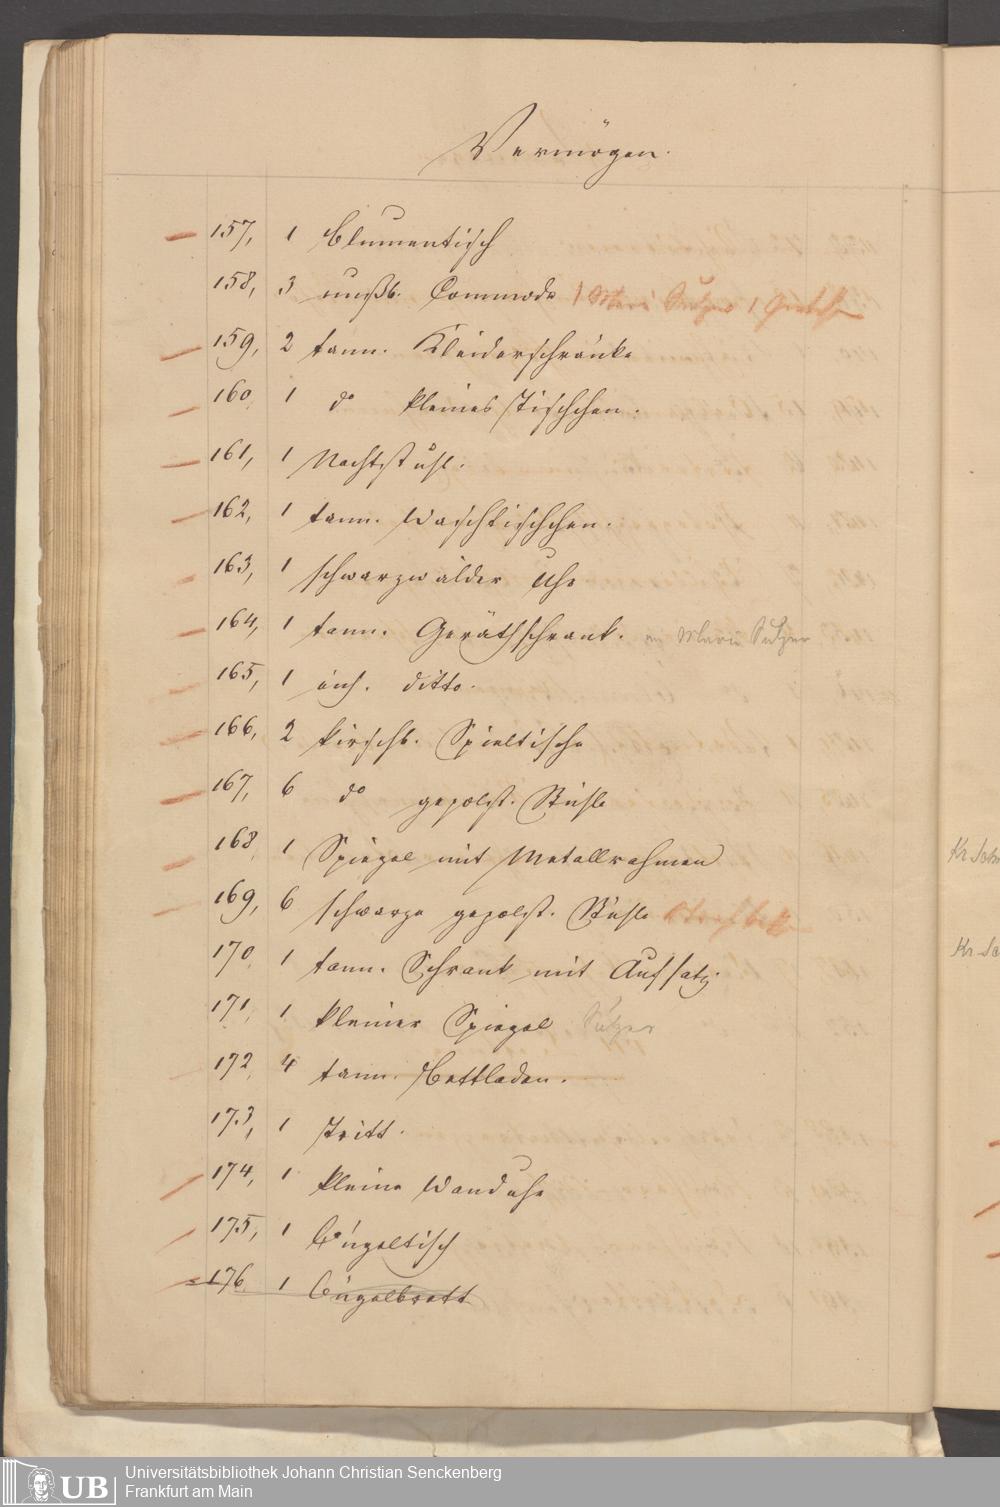 Vermögen.
157, 1 Blumentisch
158, 3 nußb. Commode 1 Marie Sulzer 1
159, 2 tann. Kleiderschränke
160, 1 do kleines Tischchen.
161, 1 Nachtstuhl.
162, 1 tann. Waschtischchen.
163, 1 schwarzwälder Uhr
164, 1 tann. Geräthschrank. Marie Sulzer
165, 1 eich. ditto.
166, 2 kirschb. Spieltische
167, 6 do gepolst. Stühle
168, 1 Spiegel mit Metallrahmen
169, 6 schwarze gepolst. Stühle
170, 1 tann. Schrank mit Aufsatz.
171, 1 kleiner Spiegel Sulzer
172, 4 tann. Bettladen.
173, 1 Tritt.
174, 1 kleine Wanduhr
175, 1 Bügeltisch
176, 1 Bügelbrett
Universitätsbibliothek Johann Christian Senckenberg
Frankfurt am Main
UB